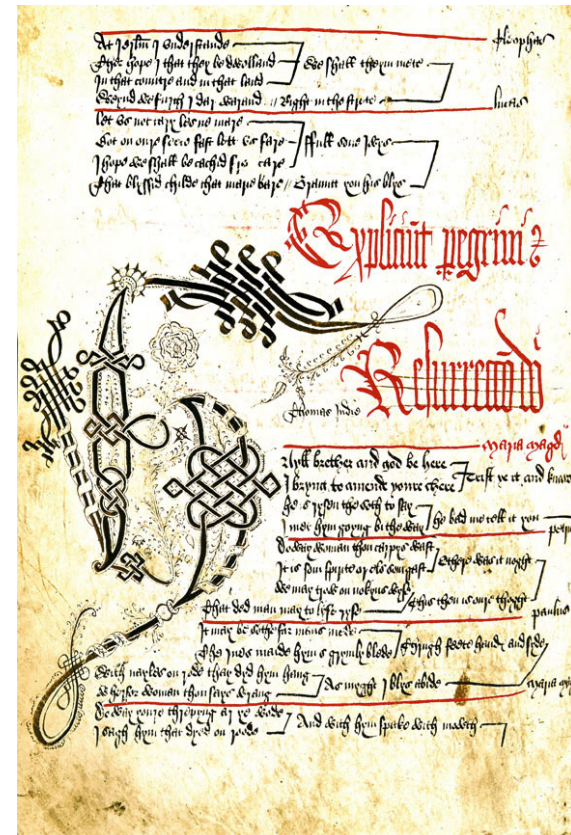 cleophas
At ierlm I understande
Ther hope I that they be dwelland We shall theym mete
In that countre and in that land
Weynd we furth I dar warand // Right in the strete
lucas
let us not tary les ne mare
Bot on oure feete fast lett us fare ffull sone I wys
I hope we shall be cachid fro care
That blyssid childe that marie bare // Graunt you his blys
Explicit pegrini
Thomas Indie
maria magd
brether and god be here
I bryng to amend youre chere Trist ye it and knawe
he is rysen the soth to say
I met hym goyng bi the way he bad me tell it you
petrus
Do way woman thou carpys wast
It is som spirite or els som gast Othere was it noght
We may trow on nokyns wyse
That ded man may to lyfe ryse This then is oure thoght
paulus
It may be sothe for mans mede
The Iues maide hym grymly blede Thrugh feete hand and side
With nayles on rode thay dyd hym hang
Wherfor woman thou says wrang As myght I blys abide
maria
Do way youre threpyng ar ye wode
I sagh hym that dyed on roode And with hym spake with mowth